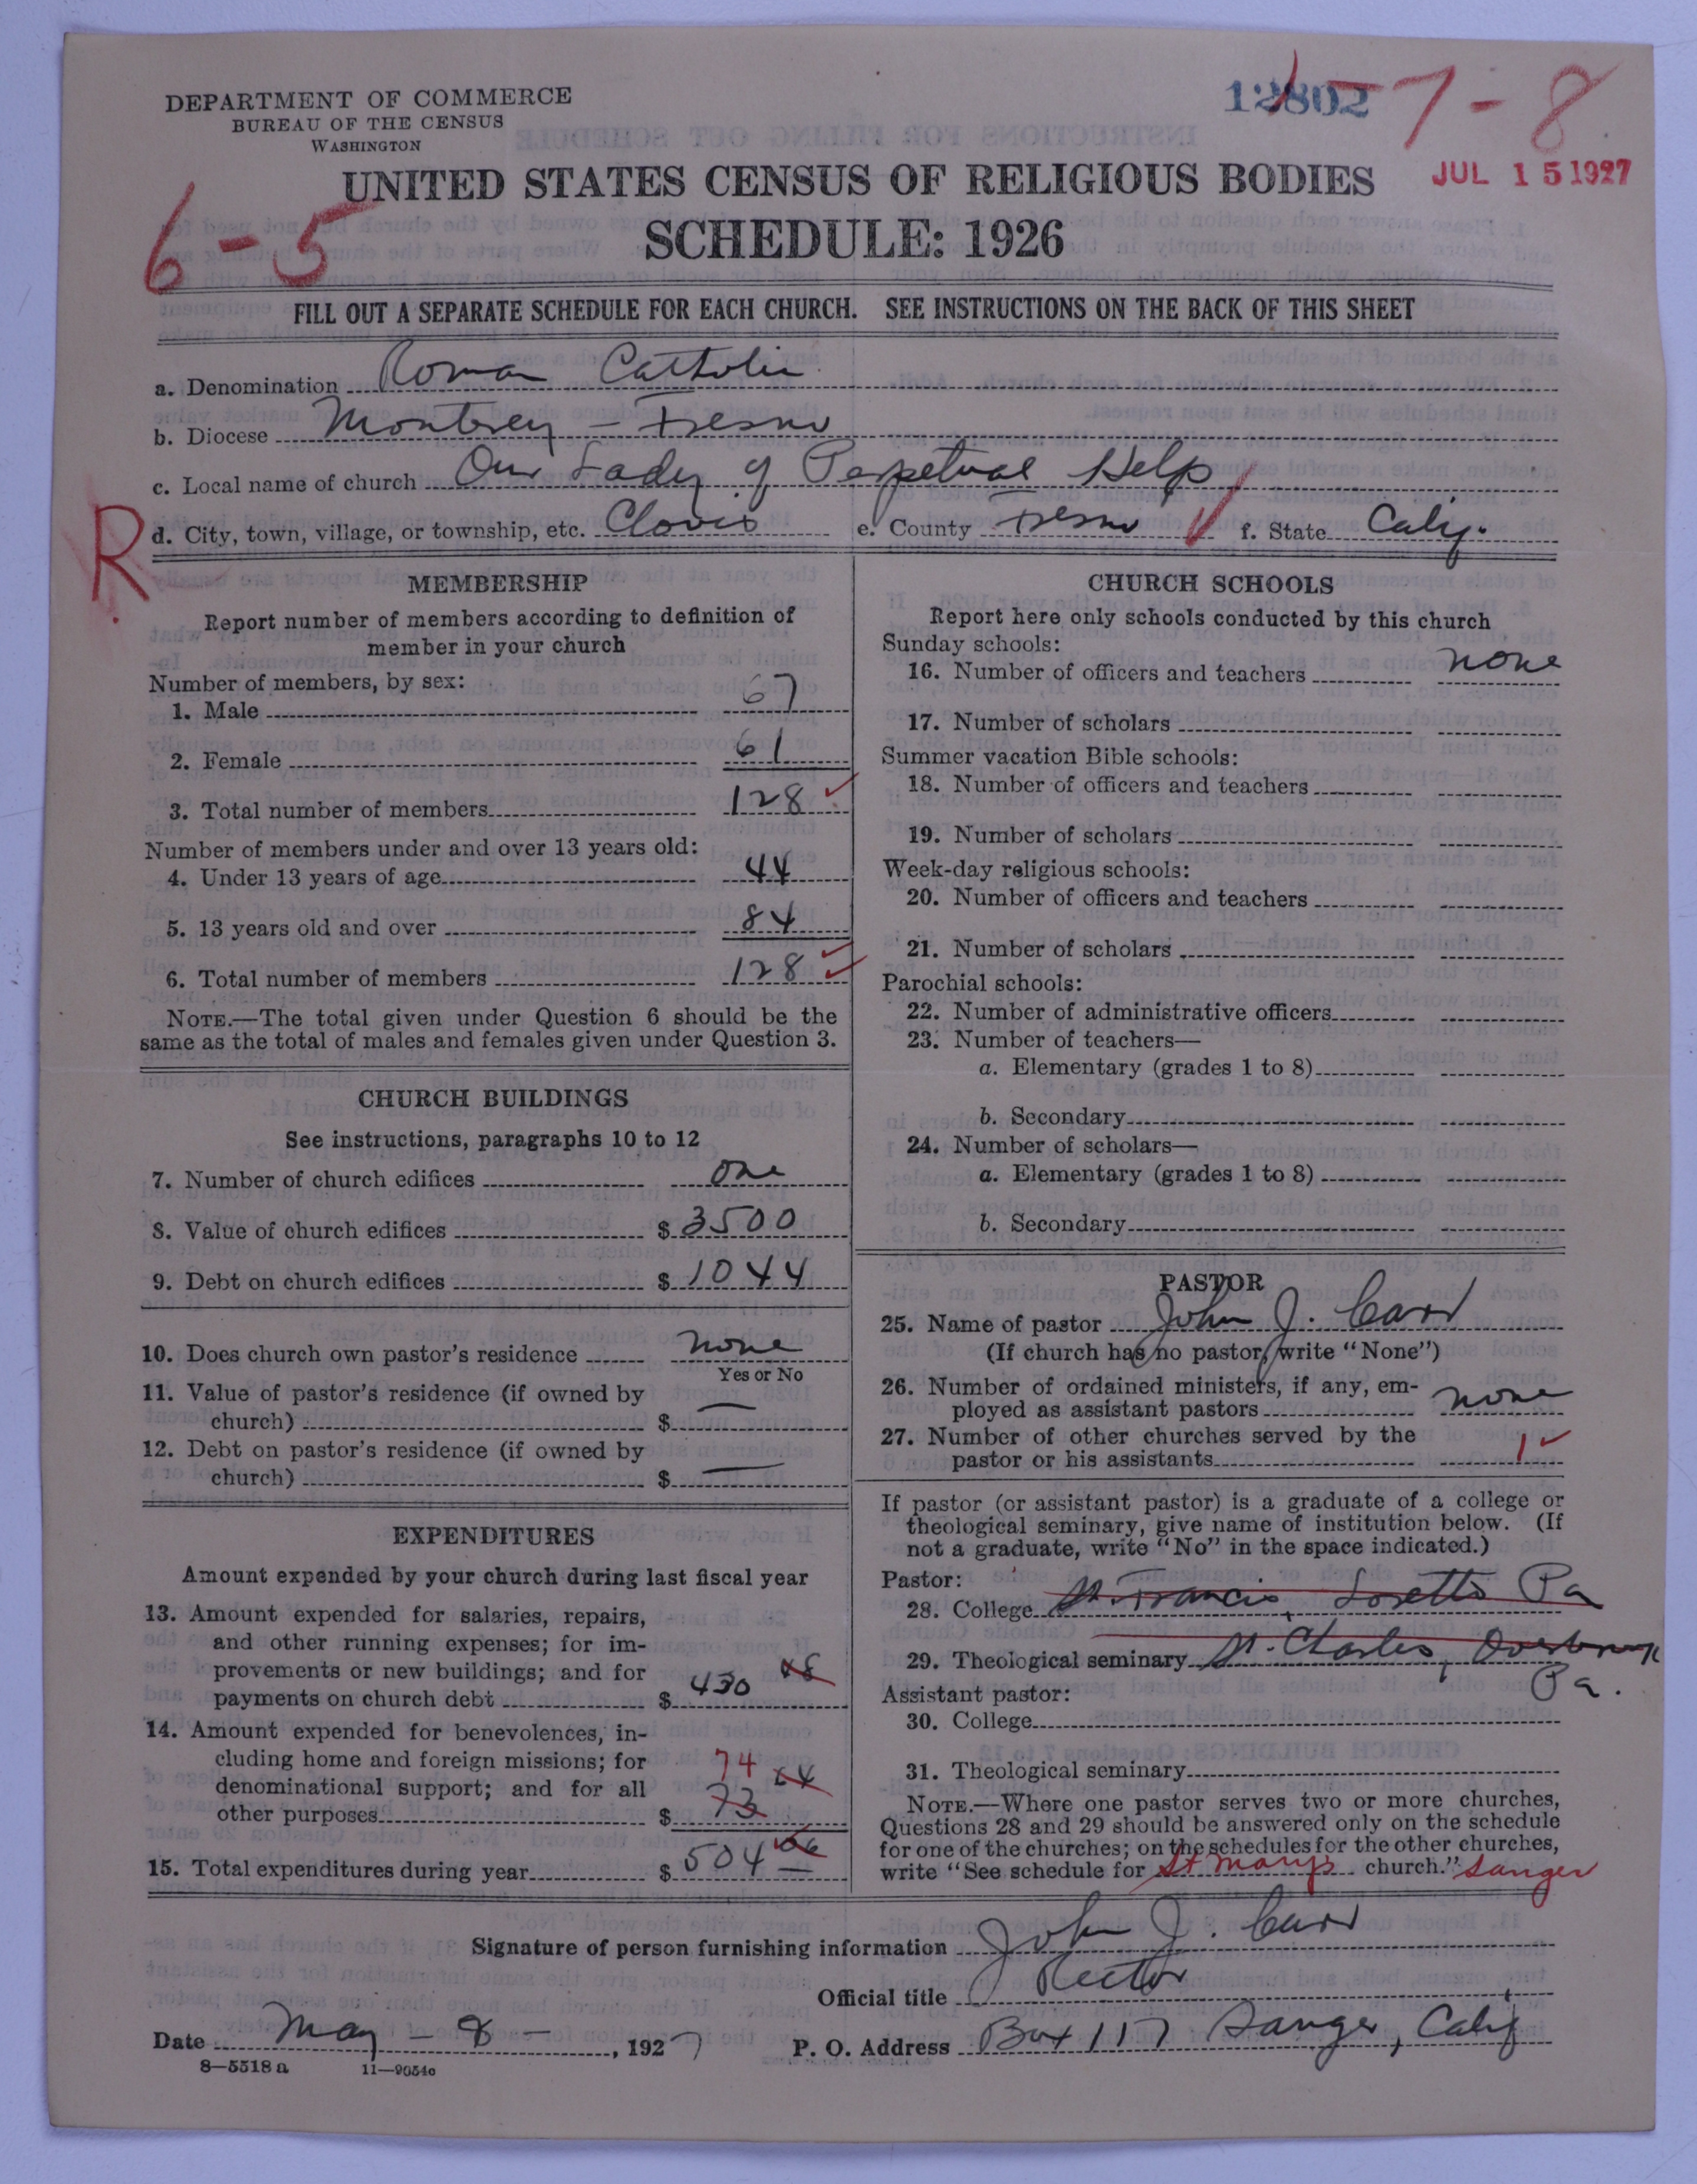 DEPARTMENT OF COMMERCE
BUREAU OF THE CENSUS
WASHINGTON
12802
1-7-8
JUL 15 1927
6-5
UNITED STATES CENSUS OF RELIGIOUS BODIES
SCHEDULE: 1926
FILL OUT A SEPARATE SCHEDULE FOR EACH CHURCH. SEE INSTRUCTIONS ON THE BACK OF THIS SHEET
a. Denomination Roman Catholic
b. Diocese Monterey - Fresno
c. Local name of church Our Lady of Perpetual Help
R
d. City, town, village, or township, etc. Clovis e. County Fresno f. State Calif.
MEMBERSHIP
Report number of members according to definition of
member in your church
Number of members, by sex:
1. Male 67
2. Female 61
3. Total number of members 128
Number of members under and over 13 years old:
4. Under 13 years of age 44
5. 13 years old and over 84
6. Total number of members 128
NOTE.—The total given under Question 6 should be the
same as the total of males and females given under Question 3.
CHURCH BUILDINGS
See instructions, paragraphs 10 to 12
7. Number of church edifices one
8. Value of church edifices $ 3500
9. Debt on church edifices $ 1044
10. Does church own pastor's residence none
Yes or No
11. Value of pastor's residence (if owned by
church) $ —
12. Debt on pastor's residence (if owned by
church) $ —
EXPENDITURES
Amount expended by your church during last fiscal year
13. Amount expended for salaries, repairs,
and other running expenses; for im-
provements or new buildings; and for
payments on church debt $ 430
14. Amount expended for benevolences, in-
cluding home and foreign missions; for 74
denominational support; and for all
other purposes $ 73
15. Total expenditures during year $ 504
CHURCH SCHOOLS
Report here only schools conducted by this church
Sunday schools:
16. Number of officers and teachers none
17. Number of scholars
Summer vacation Bible schools:
18. Number of officers and teachers
19. Number of scholars
Week-day religious schools:
20. Number of officers and teachers
21. Number of scholars
Parochial schools:
22. Number of administrative officers
23. Number of teachers—
a. Elementary (grades 1 to 8)
b. Secondary
24. Number of scholars—
a. Elementary (grades 1 to 8)
b. Secondary
PASTOR
25. Name of pastor John J. Carr
(If church has no pastor, write "None")
26. Number of ordained ministers, if any, em-
ployed as assistant pastors none
27. Number of other churches served by the
pastor or his assistants 1
If pastor (or assistant pastor) is a graduate of a college or
theological seminary, give name of institution below. (If
not a graduate, write "No" in the space indicated.)
Pastor:
28. College St. Francis, Loretto Pa
29. Theological seminary St. Charles, Overbrook
Pa.
Assistant pastor:
30. College
31. Theological seminary
NOTE.—Where one pastor serves two or more churches,
Questions 28 and 29 should be answered only on the schedule
for one of the churches; on the schedules for the other churches,
write "See schedule for St Mary's church." Sanger
Signature of person furnishing information John J. Carr
Official title Rector
Date May - 8 - , 1927 P. O. Address Box 117 Sanger, Calif
8—5518 a 11—9054c